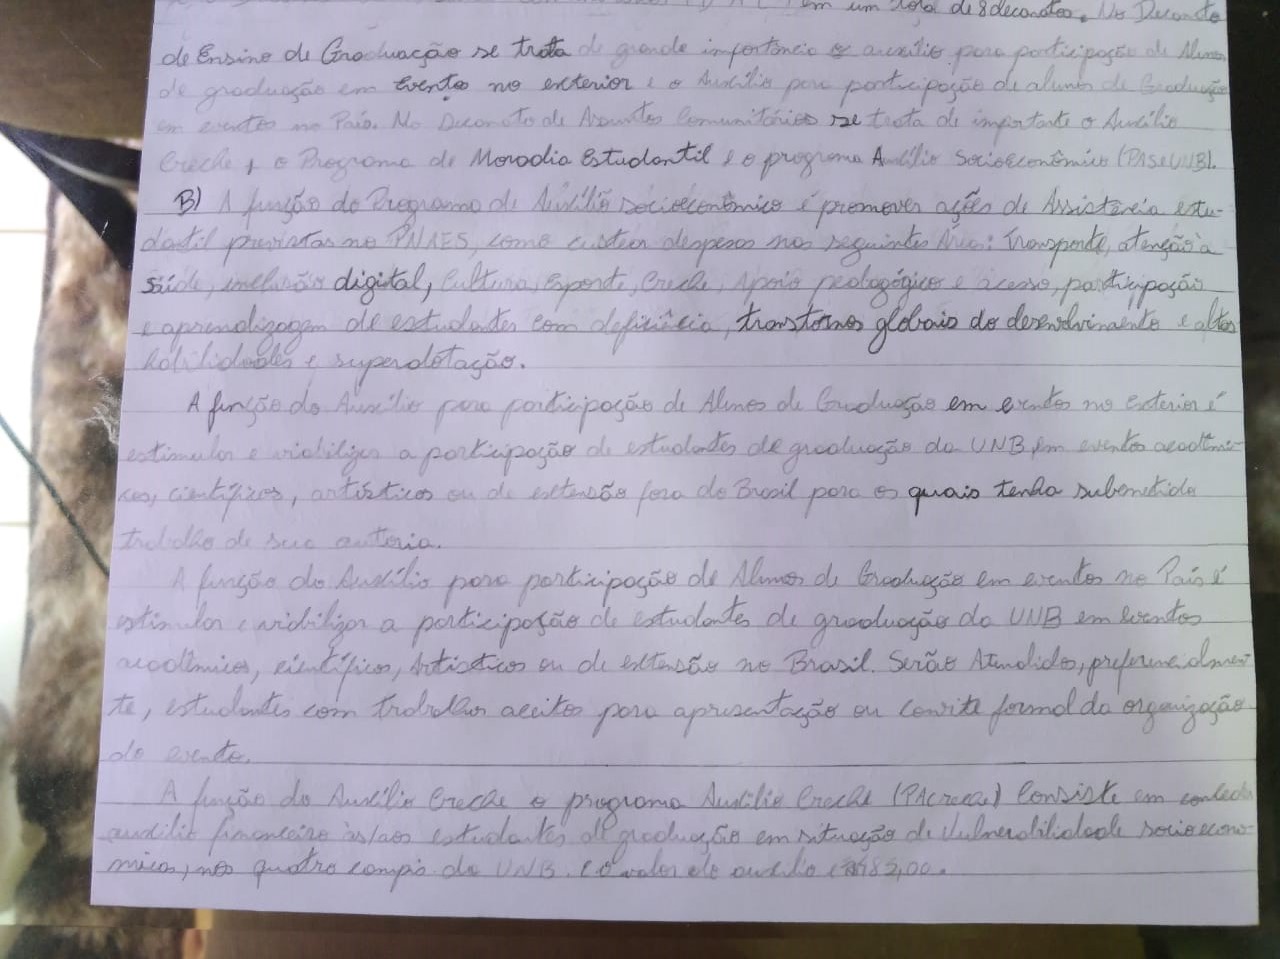 em um total de 8 decanatos. No Decanato
de Ensino de Graduação se trata de grande importância o auxílio para participação de Alunos
de graduação em evento no exterior e o Auxílio para participação de alunos de Graduação
em eventos no País. No Decanato de Assuntos Comunitários se trata de importante o Auxílio
Creche, o Programa de Moradia Estudantil e o programa Auxílio Socioeconômico (PASEUNB).
B) A função do Programa de Auxílio socioeconômico é promover ações de Assistência estu-
dantil previstas no PNAES, como custear despesas nas seguintes Área: Transporte, atenção à
saúde, inclusão digital, Cultura, Esporte, Creche, Apoio pedagógico e acesso, participação
e aprendizagem de estudantes com deficiência, transtornos globais do desenvolvimento e altas
habilidades e superdotação.
A função do Auxílio para participação de Alunos de Graduação em eventos no exterior é
estimular e viabilizar a participação de estudantes de graduação da UNB em eventos acadêmi-
cos, científicos, artísticos ou de extensão fora do Brasil para os quais tenha submetido
trabalho de sua autoria.
A função do Auxílio para participação de Alunos de Graduação em eventos no País é
estimular e viabilizar a participação de estudantes de graduação da UNB em eventos
acadêmicos, científicos, Artísticos ou de extensão no Brasil. Serão Atendidos, preferencialmen-
te, estudantes com trabalhos aceitos para apresentação ou convite formal da organização
do evento.
A função do Auxílio Creche o programa Auxílio Creche (PAcreche) Consiste em conceder
auxílio financeiro às/aos estudantes de graduação em situação de Vulnerabilidade socioeconô-
micas, nos quatro campis da UNB. E o valor do auxílio é